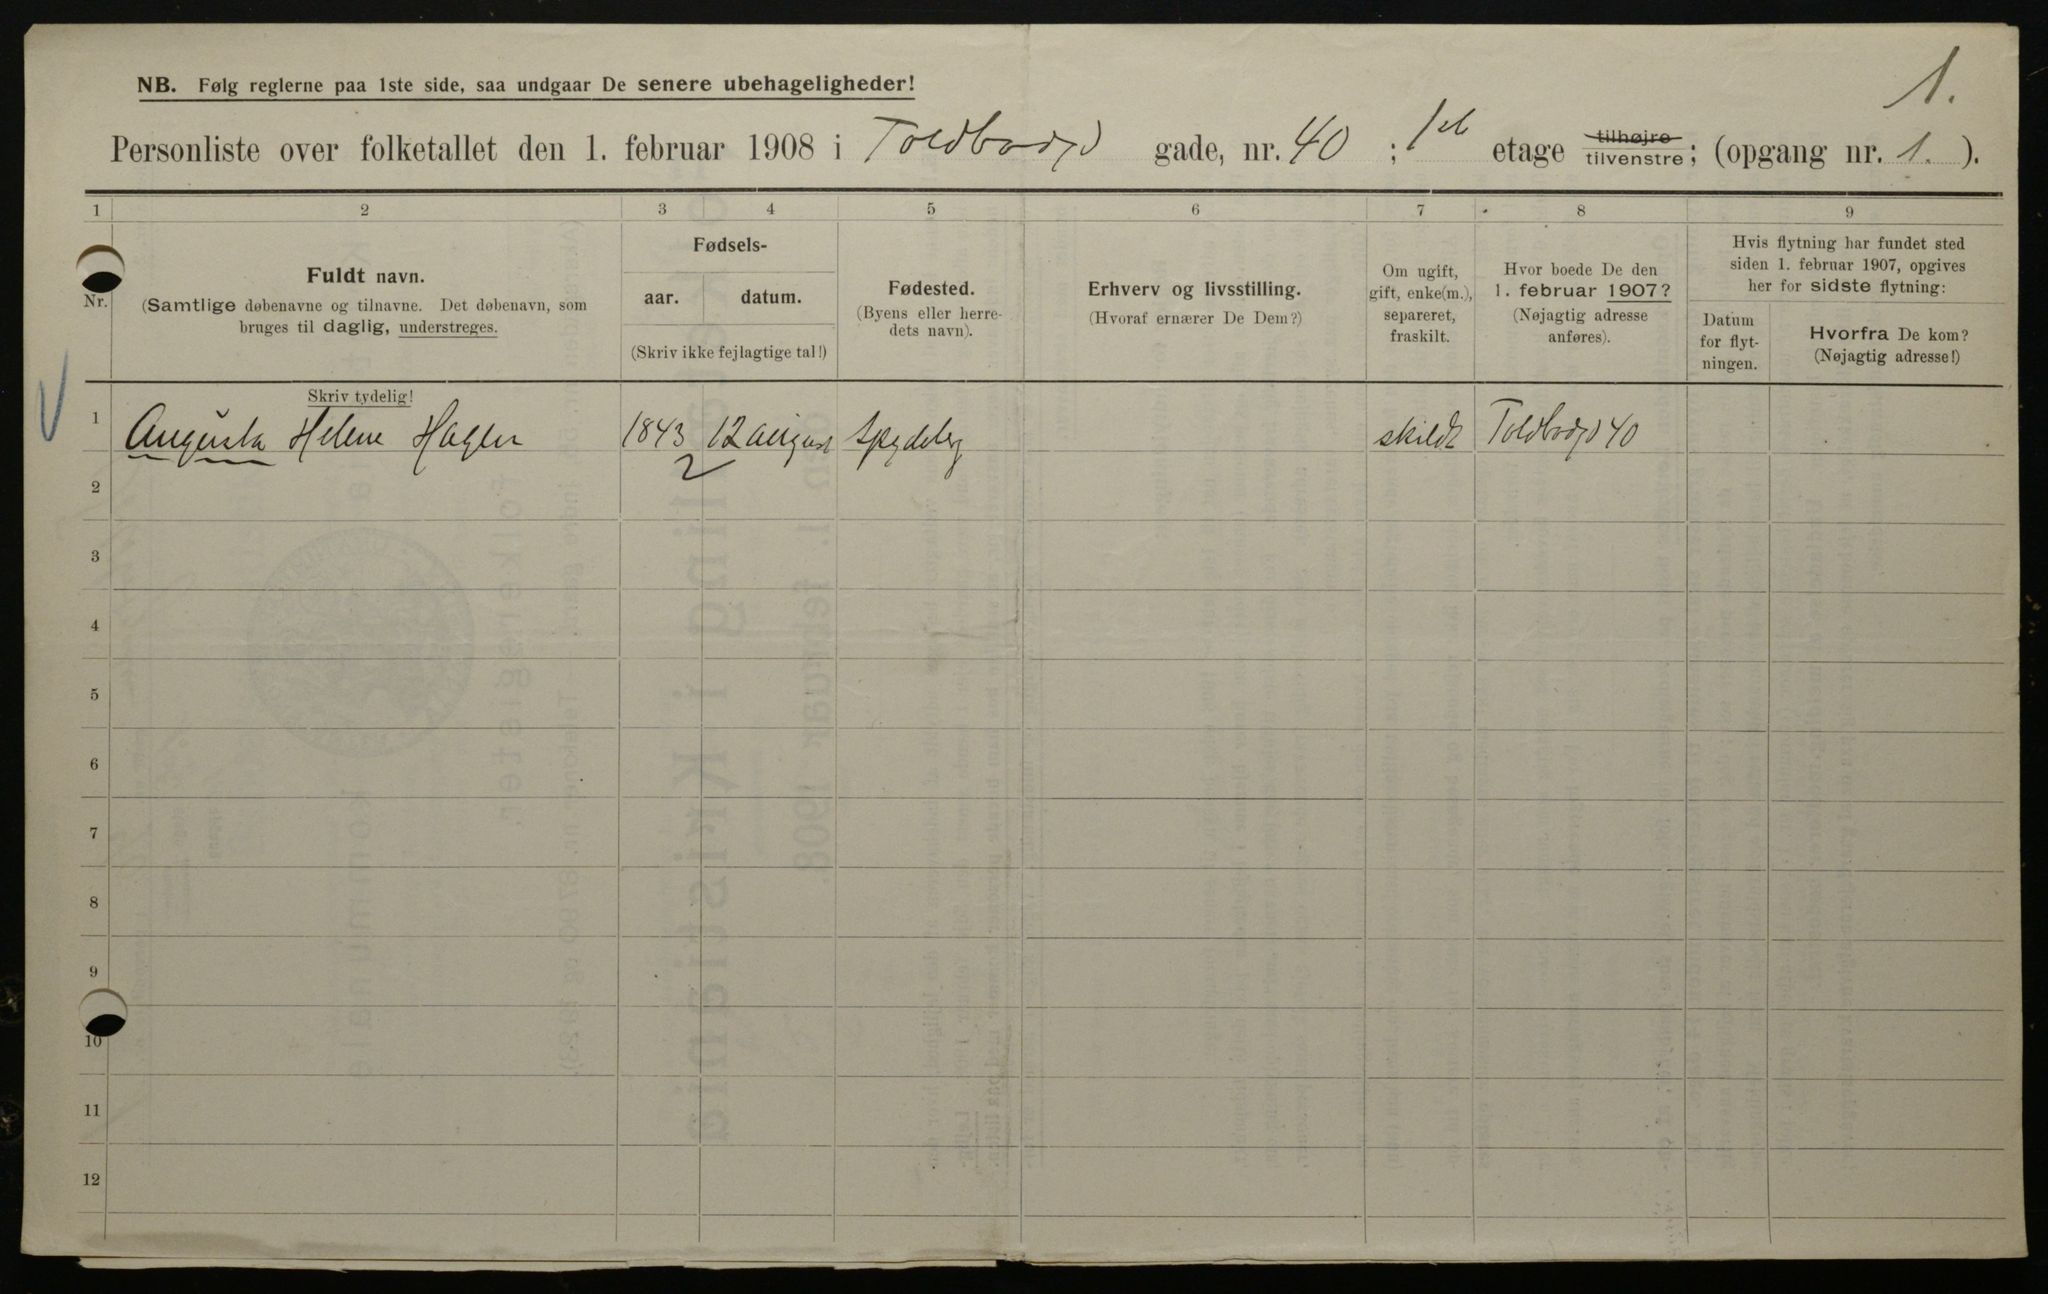 1.
NB. Følg reglerne paa 1ste side, saa undgaar De senere ubehageligheder!
Personliste over folketallet den 1. februar 1908 i Toldbodgd gade, nr. 40 ; 1ste etage tilhøjre tilvenstre; (opgang nr. 1. ).
1 2 3 4 5 6 7 8 9
Nr.
Fuldt navn.
(Samtlige døbenavne og tilnavne. Det døbenavn, som
bruges til daglig, understreges.
Fødsels-
aar. datum.
(Skriv ikke fejlagtige tal!)
Fødested.
(Byens eller herre-
dets navn).
Erhverv og livsstilling.
(Hvoraf ernærer De Dem?)
Om ugift,
gift, enke(m.),
separeret,
fraskilt.
Hvor boede De den
1. februar 1907?
(Nøjagtig adresse
anføres).
Hvis flytning har fundet sted
siden 1. februar 1907, opgives
her for sidste flytning:
Datum
for flyt-
ningen.
Hvorfra De kom?
(Nøjagtig adresse!)
Skriv tydelig!
1 Augusta Helene Hagen 1843 12 august Spydeberg skildt Toldbodgd 40
2
2
3
4
5
6
7
8
9
10
11
12